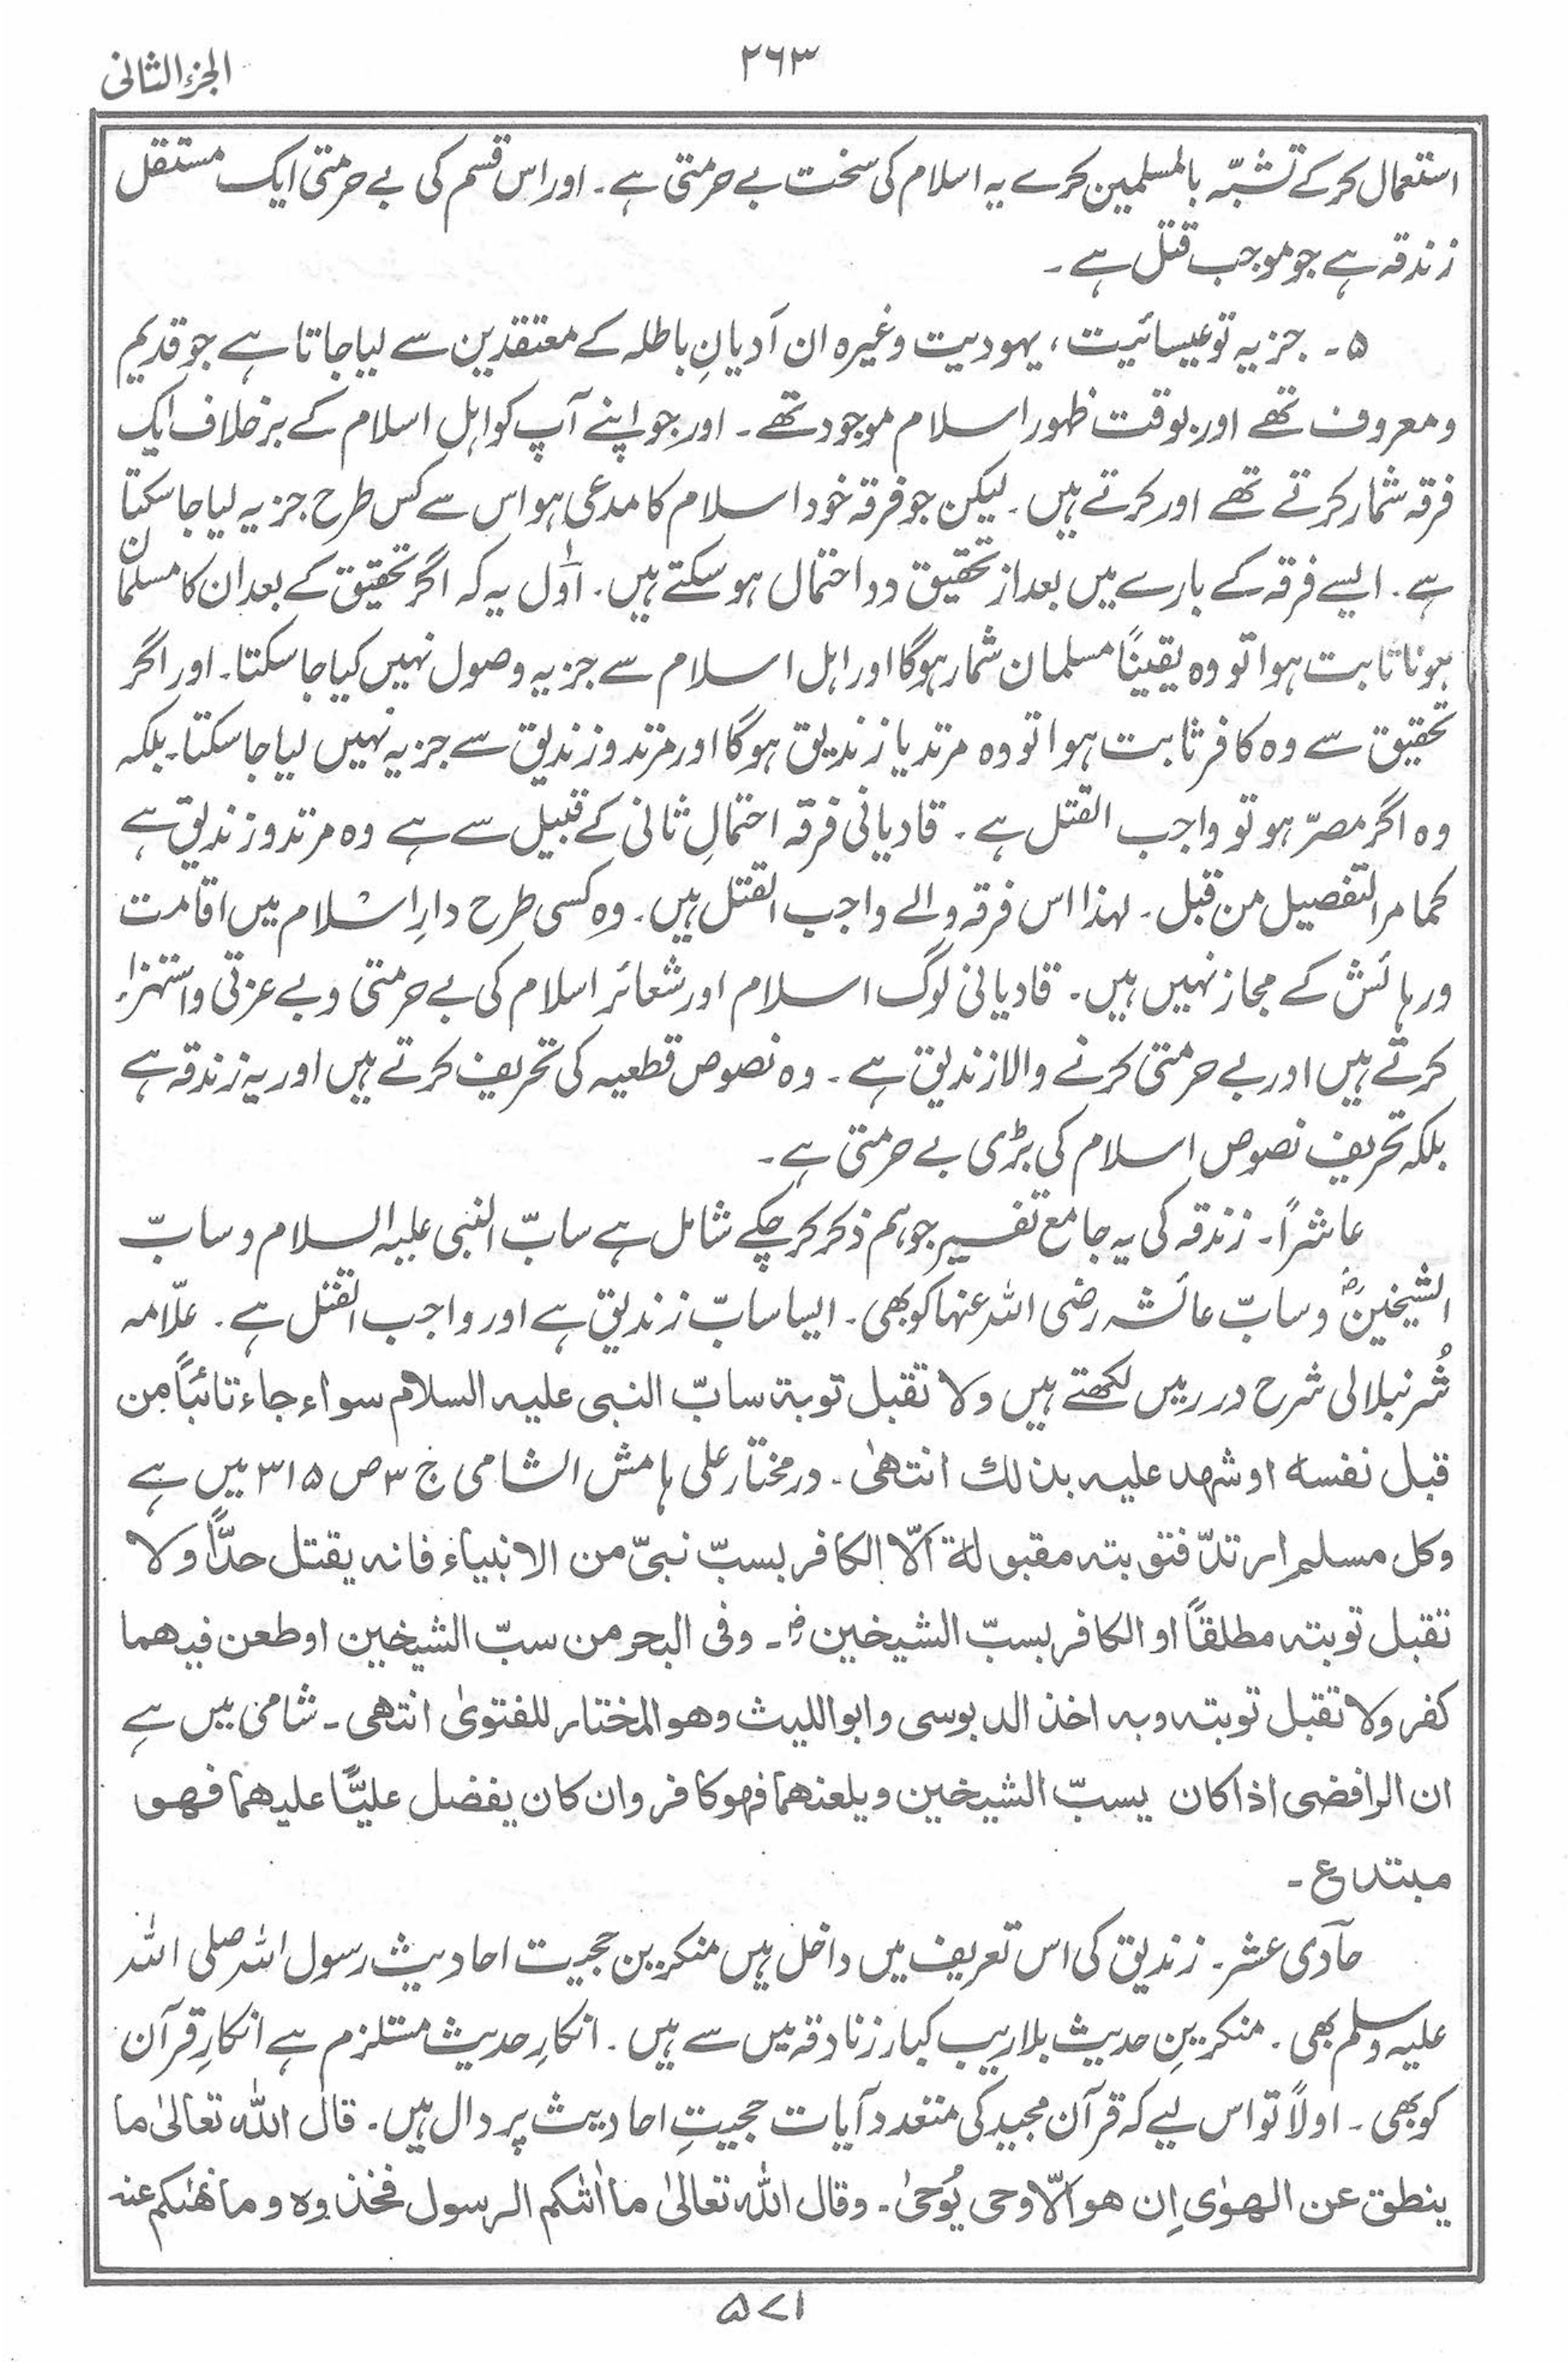 الجزء الثانی
۲۶۳
استعمال کرکے تشبّہ بالمسلمین کرے یہ اسلام کی سخت بے حرمتی ہے۔ اور اس قسم کی بے حرمتی ایک مستقل
زندقہ ہے جو موجب قتل ہے۔
۵۔ جزیہ تو عیسائیت، یہودیت وغیرہ ان اَدیانِ باطلہ کے معتقدین سے لیا جاتا ہے جو قدیم
و معروف تھے اور بوقت ظہور اسلام موجود تھے۔ اور جو اپنے آپ کو اہل اسلام کے برخلاف ایک
فرقہ شمار کرتے تھے اور کرتے ہیں۔ لیکن جو فرقہ خود اسلام کا مدعی ہو اس سے کس طرح جزیہ لیا جا سکتا
ہے۔ ایسے فرقہ کے بارے میں بعد از تحقیق دو احتمال ہو سکتے ہیں۔ اوّل یہ کہ اگر تحقیق کے بعد ان کا مسلمان
ہونا ثابت ہوا تو وہ یقیناً مسلمان شمار ہوگا اور اہل اسلام سے جزیہ وصول نہیں کیا جا سکتا۔ اور اگر
تحقیق سے وہ کافر ثابت ہوا تو وہ مرتد یا زندیق ہوگا اور مرتد و زندیق سے جزیہ نہیں لیا جا سکتا۔ بلکہ
وہ اگر مصرّ ہو تو واجب القتل ہے۔ قادیانی فرقہ احتمالِ ثانی کے قبیل سے ہے وہ مرتد و زندیق ہے
کما مر التفصیل من قبل۔ لہذا اس فرقہ والے واجب القتل ہیں۔ وہ کسی طرح دارِ اسلام میں اقامت
و رہائش کے مجاز نہیں ہیں۔ قادیانی لوگ اسلام اور شعائرِ اسلام کی بے حرمتی و بے عزتی و استہزاء
کرتے ہیں اور بے حرمتی کرنے والا زندیق ہے۔ وہ نصوص قطعیہ کی تحریف کرتے ہیں اور یہ زندقہ ہے
بلکہ تحریف نصوص اسلام کی بڑی بے حرمتی ہے۔
عاشراً۔ زندقہ کی یہ جامع تفسیر جو ہم ذکر کر چکے شامل ہے سابّ النبی علیہ السلام و سابّ
الشیخینؓ و سابّ عائشہ رضی اللہ عنہا کو بھی۔ ایسا سابّ زندیق ہے اور واجب القتل ہے۔ علّامہ
شُرنبلالی شرح درر میں لکھتے ہیں ولا تقبل توبۃ سابّ النبی علیہ السلام سواء جاء تائبًا من
قبل نفسہ او شھد علیہ بذلك انتھیٰ۔ درمختار علی ہامش الشامی ج ۳ ص ۳۱۵ میں ہے
وکل مسلم ارتدّ فتوبتہ مقبولۃ اَلّا الکافر بسبّ نبیّ من الانبیاء فانہ یقتل حدًّا ولا
تقبل توبتہ مطلقًا او الکافر بسبّ الشیخینؓ۔ وفی البحر من سبّ الشیخین او طعن فیھما
کفر ولا تقبل توبتہ وبہ اخذ الدبوسی وابو اللیث وھو المختار للفتویٰ انتھی۔ شامی میں ہے
ان الرافضی اذا کان یسبّ الشیخین ویلعنھما فھو کافر وان کان یفضل علیًّا علیھما فھو
مبتدع۔
حآدی عشر۔ زندیق کی اس تعریف میں داخل ہیں منکرین حجیت احادیث رسول اللہ صلی اللہ
علیہ وسلم بھی۔ منکرینِ حدیث بلاریب کبار زنادقہ میں سے ہیں۔ انکارِ حدیث مستلزم ہے انکارِ قرآن
کو بھی۔ اولاً تو اس لیے کہ قرآن مجید کی متعدد آیات حجیتِ احادیث پر دال ہیں۔ قال اللہ تعالیٰ ما
ینطق عن الھوٰی اِن ھو اَلّا وحی یُوحیٰ۔ وقال اللہ تعالیٰ ما اٰتٰکم الرسول فخذوہ وما نھٰکم عنہ
۵۷۱